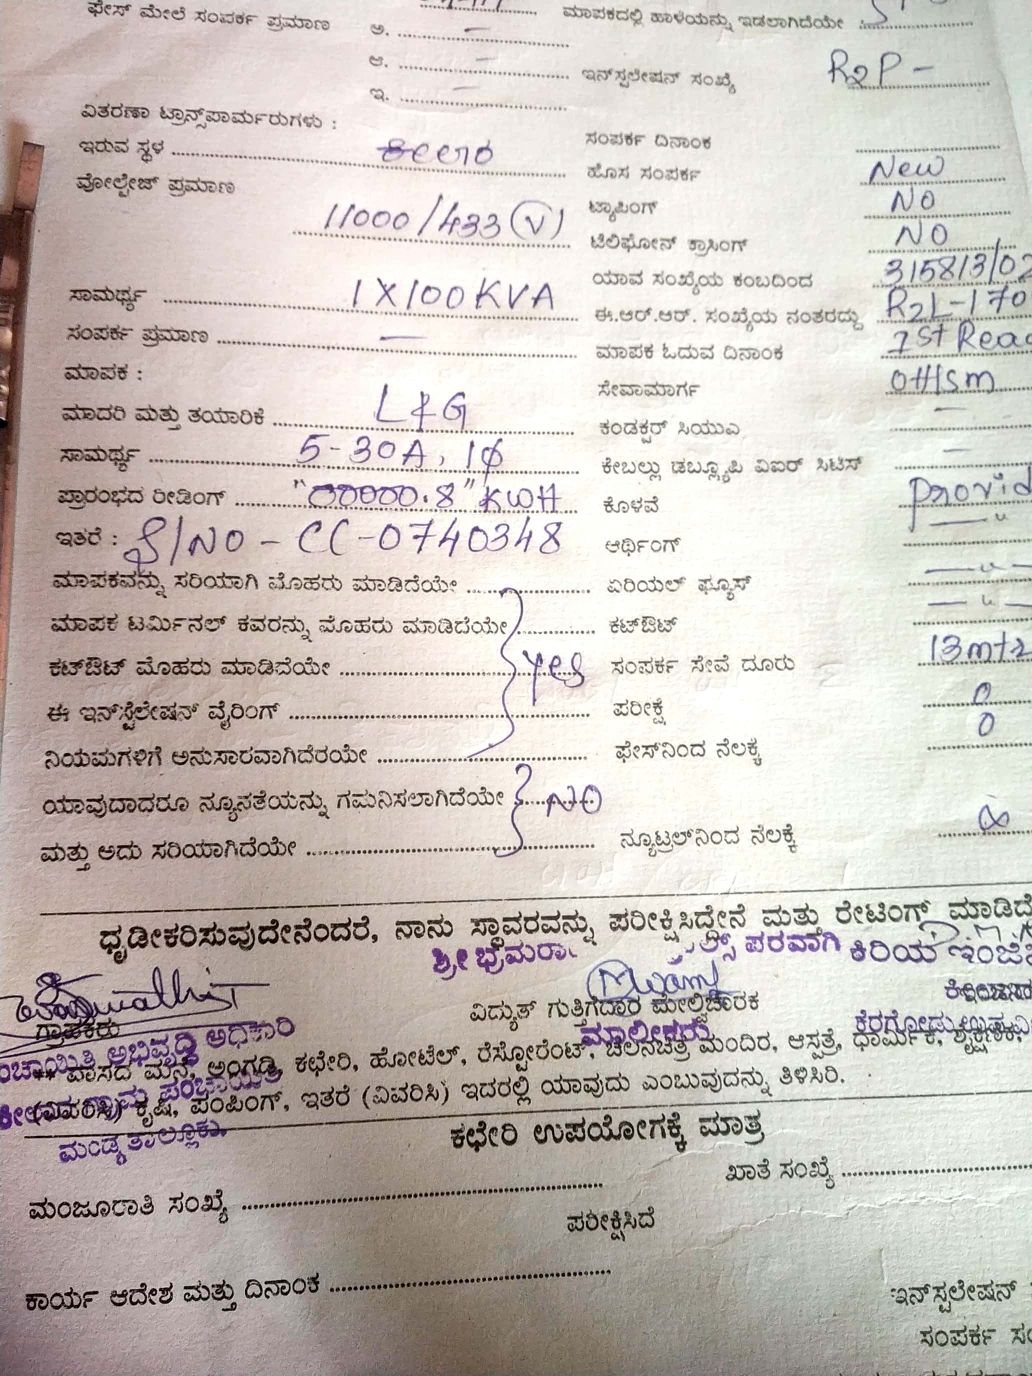 ಫೇಸ್ ಮೇಲೆ ಸಂಪರ್ಕ ಪ್ರಮಾಣ
ಅ. —
ಆ. —
ಇ. —
ವಿತರಣಾ ಟ್ರಾನ್ಸ್‌ಪಾರ್ಮರುಗಳು :
ಇರುವ ಸ್ಥಳ
ವೋಲ್ಟೇಜ್ ಪ್ರಮಾಣ 11000/433 (V)
ಸಾಮರ್ಥ್ಯ 1X100KVA
ಸಂಪರ್ಕ ಪ್ರಮಾಣ —
ಮಾಪಕ :
ಮಾದರಿ ಮತ್ತು ತಯಾರಿಕೆ L&G
ಸಾಮರ್ಥ್ಯ 5-30A, 1ϕ
ಪ್ರಾರಂಭದ ರೀಡಿಂಗ್ "00000.8" KWH
ಇತರೆ : S/NO - CC-0740348
ಮಾಪಕವನ್ನು ಸರಿಯಾಗಿ ಮೊಹರು ಮಾಡಿದೆಯೇ
ಮಾಪಕ ಟರ್ಮಿನಲ್ ಕವರನ್ನು ಮೊಹರು ಮಾಡಿದೆಯೇ
ಕಟ್‌ಔಟ್ ಮೊಹರು ಮಾಡಿದೆಯೇ Yes
ಈ ಇನ್‌ಸ್ಟಲೇಷನ್ ವೈರಿಂಗ್
ನಿಯಮಗಳಿಗೆ ಅನುಸಾರವಾಗಿದೆರಯೇ
ಯಾವುದಾದರೂ ನ್ಯೂನತೆಯನ್ನು ಗಮನಿಸಲಾಗಿದೆಯೇ NO
ಮತ್ತು ಅದು ಸರಿಯಾಗಿದೆಯೇ
ಮಾಪಕದಲ್ಲಿ ಹಾಳೆಯನ್ನು ಇಡಲಾಗಿದೆಯೇ :
ಇನ್‌ಸ್ಟಲೇಷನ್ ಸಂಖ್ಯೆ R2P -
ಸಂಪರ್ಕ ದಿನಾಂಕ
ಹೊಸ ಸಂಪರ್ಕ New
ಟ್ಯಾಪಿಂಗ್ NO
ಟೆಲಿಫೋನ್ ಕ್ರಾಸಿಂಗ್ NO
ಯಾವ ಸಂಖ್ಯೆಯ ಕಂಬದಿಂದ 315813/02
ಈ.ಆರ್.ಆರ್. ಸಂಖ್ಯೆಯ ನಂತರದ್ದು R2L-170
ಮಾಪಕ ಓದುವ ದಿನಾಂಕ 1st
ಸೇವಾಮಾರ್ಗ OH/Sm
ಕಂಡಕ್ಟರ್ ಸಿಯುಎ —
ಕೇಬಲ್ಲು ಡಬ್ಲ್ಯೂಪಿ ವಿಐರ್ ಸಿಟಿಸ್ —
ಕೊಳವೆ Provid
ಆರ್ಥಿಂಗ್ —"—
ಏರಿಯಲ್ ಫ್ಯೂಸ್ —"—
ಕಟ್‌ಔಟ್ —"—
ಸಂಪರ್ಕ ಸೇವೆ ದೂರು 13mtr
ಪರೀಕ್ಷೆ 0
ಫೇಸ್‌ನಿಂದ ನೆಲಕ್ಕೆ 0
ನ್ಯೂಟ್ರಲ್‌ನಿಂದ ನೆಲಕ್ಕೆ
ಧೃಡೀಕರಿಸುವುದೇನೆಂದರೆ, ನಾನು ಸ್ಥಾವರವನ್ನು ಪರೀಕ್ಷಿಸಿದ್ದೇನೆ ಮತ್ತು ರೇಟಿಂಗ್ ಮಾಡಿದೆ
ಶ್ರೀ ಭ್ರಮರಾ ಪರವಾಗಿ ಕಿರಿಯ ಇಂಜಿ
ವಿದ್ಯುತ್ ಗುತ್ತಿಗೆದಾರ ಮೇಲ್ವಿಚಾರಕ
ಗ್ರಾಹಕರು ಮಾಲೀಕರು
ಅಭಿವೃದ್ಧಿ ಅಧಿಕಾರಿ
** ವಾಸದ ಮನೆ, ಅಂಗಡಿ, ಕಛೇರಿ, ಹೋಟೆಲ್, ರೆಸ್ಟೋರೆಂಟ್, ಚಲನಚಿತ್ರ ಮಂದಿರ, ಆಸ್ಪತ್ರೆ, ಧಾರ್ಮಿಕ, ಶೈಕ್ಷಣಿಕ,
(ವಿವರಿಸಿ) ಕೃಷಿ, ಪಂಪಿಂಗ್, ಇತರೆ (ವಿವರಿಸಿ) ಇದರಲ್ಲಿ ಯಾವುದು ಎಂಬುವುದನ್ನು ತಿಳಿಸಿರಿ.
ಮಂಡ್ಯ ತಾಲ್ಲೂಕು.
ಕಛೇರಿ ಉಪಯೋಗಕ್ಕೆ ಮಾತ್ರ
ಮಂಜೂರಾತಿ ಸಂಖ್ಯೆ
ಖಾತೆ ಸಂಖ್ಯೆ
ಪರೀಕ್ಷಿಸಿದೆ
ಕಾರ್ಯ ಆದೇಶ ಮತ್ತು ದಿನಾಂಕ
ಇನ್‌ಸ್ಟಲೇಷನ್
ಸಂಪರ್ಕ